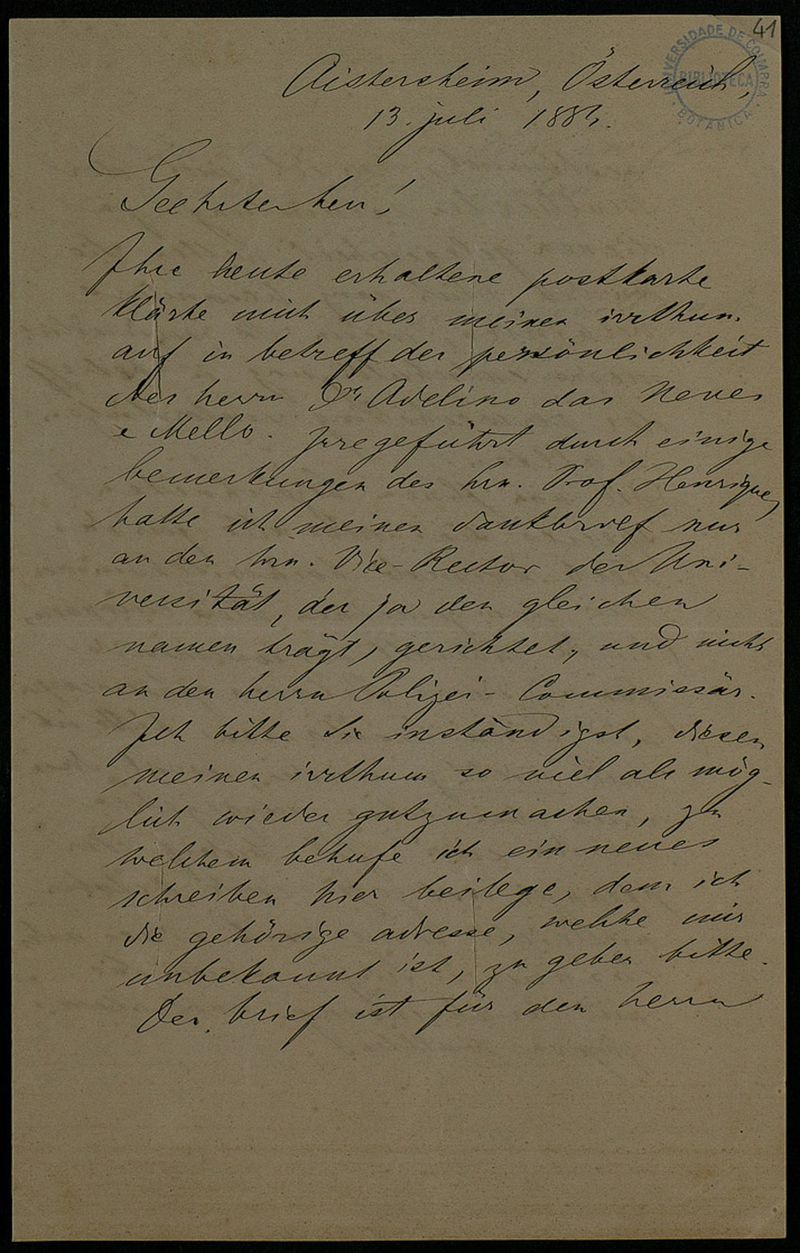 41
UNIVERSIDADE DE COIMBRA
BIBLIOTECA
BOTANICA
Aistersheim, Österreich,
13. juli 188
Geehrter herr!
Ihre heute erhaltene postkarte
klärte mich über meinen irrthum
auf in betreff der persönlichkeit
des herrn Dr Adelino das Neves
e Mello. Irregeführt durch einige
bemerkungen des hrn. Prof. Henriques,
hatte ich meinen dankbrief nur
an den hrn. Vice-Rector der Uni-
versität, der ja den gleichen
namen trägt, gerichtet, und nicht
an den herrn Polizei-Commissär.
Ich bitte Sie inständigst, diesen
meinen irrthum so viel als mög-
lich wieder gutzumachen, zu
welchem behufe ich ein neues
schreiben hier beilege, dem ich
die gehörige adresse, welche mir
unbekannt ist, zu geben bitte.
Der brief ist für den herrn